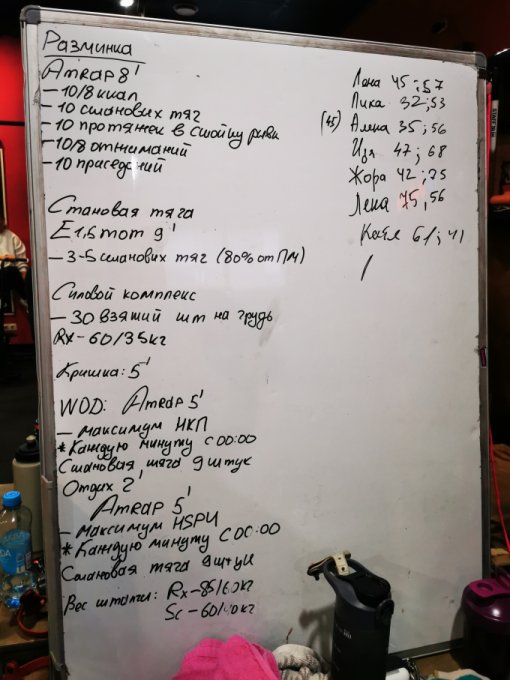 Разминка
Amrap 8'
- 10/8 ккал
- 10 становых тяг
- 10 протяжек в стойку рывк
- 10/8 отжиманий
- 10 приседаний
Становая тяга
E1,5mom 9'
- 3-5 становых тяг (80% от ПМ)
Силовой комплекс
- 30 взятий шт на грудь
Rx - 60/35кг
Крышка: 5'
WOD: Amrap 5'
- максимум НКП
* Каждую минуту с 00:00
Становая тяга 9 штук
Отдых 2'
Amrap 5'
- максимум HSPU
* Каждую минуту с 00:00
Становая тяга 9 штук
Вес штанги: Rx - 85/60кг
Sc - 60/40кг
Лена 45; 57
Лика 32; 53
(45) Алина 35; 56
Изя 47; 68
Жора 42; 75
Лена 75, 56
61; 41